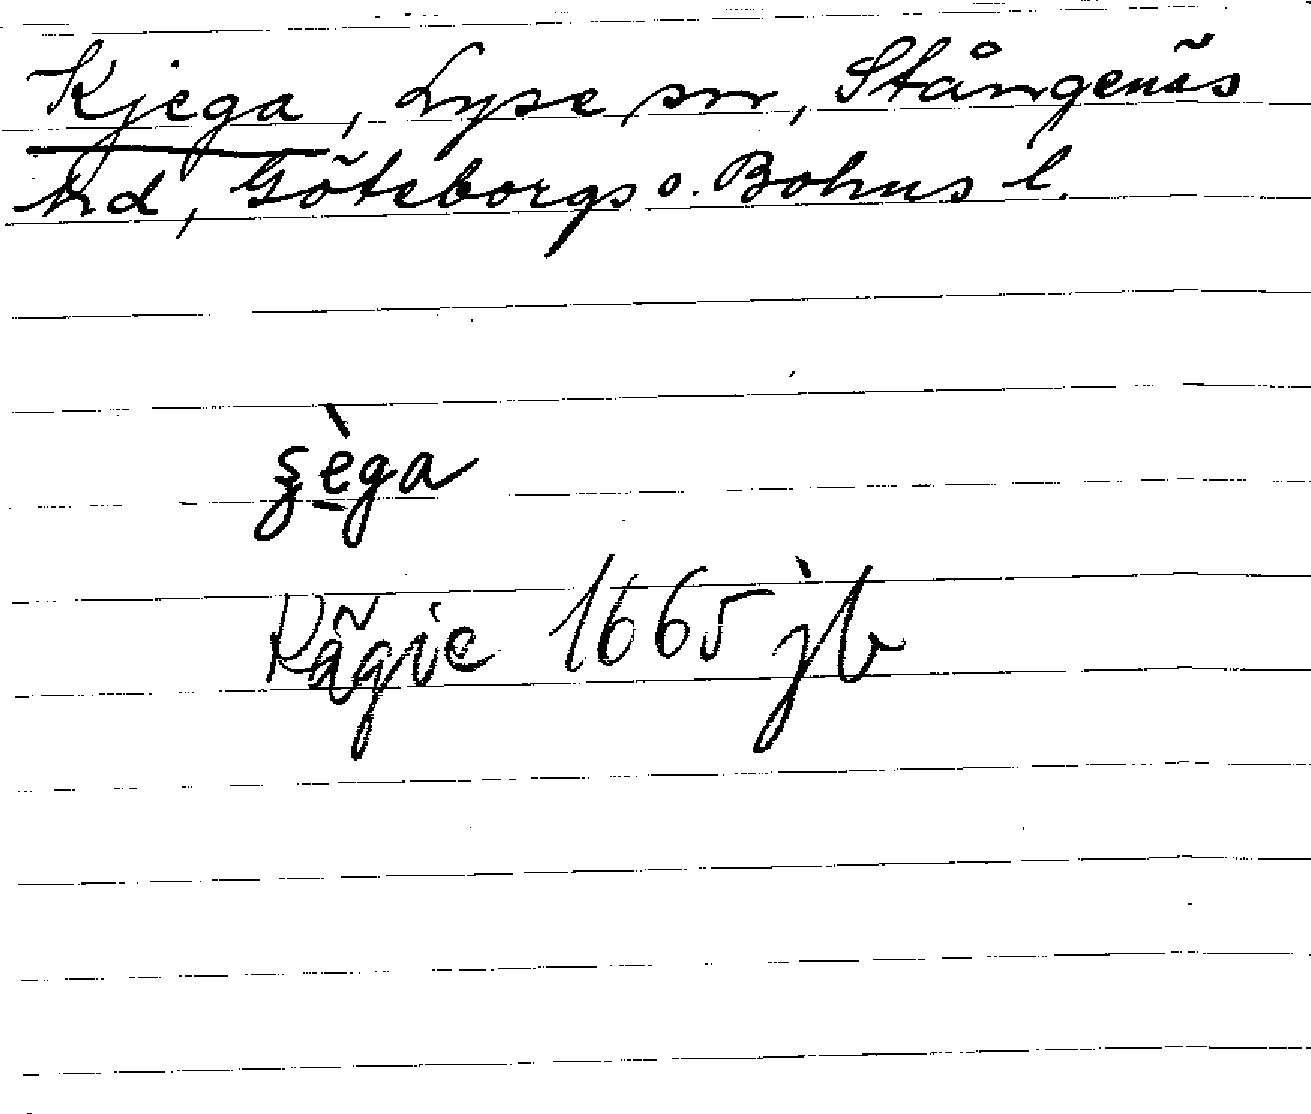 Kjega, Lyse sn, Stångenäs
hd, Göteborgs o. Bohus l.
Kägie 1665 jb